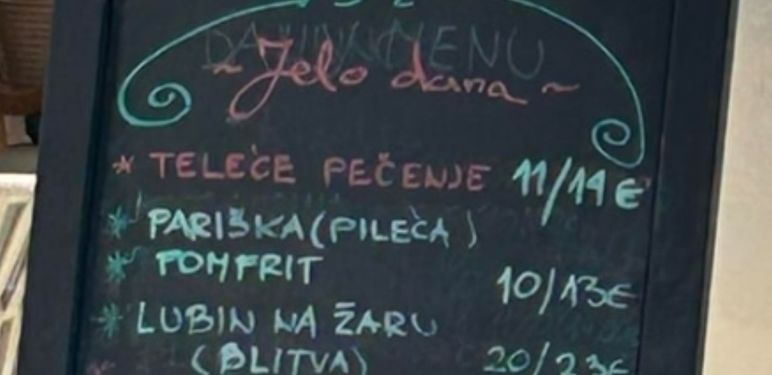 ~ Jelo dana ~
* TELEĆE PEČENJE 11/14€
* PARIŠKA (PILEĆA)
* POMFRIT 10/13€
* LUBIN NA ŽARU
(BLITVA) 20/23€